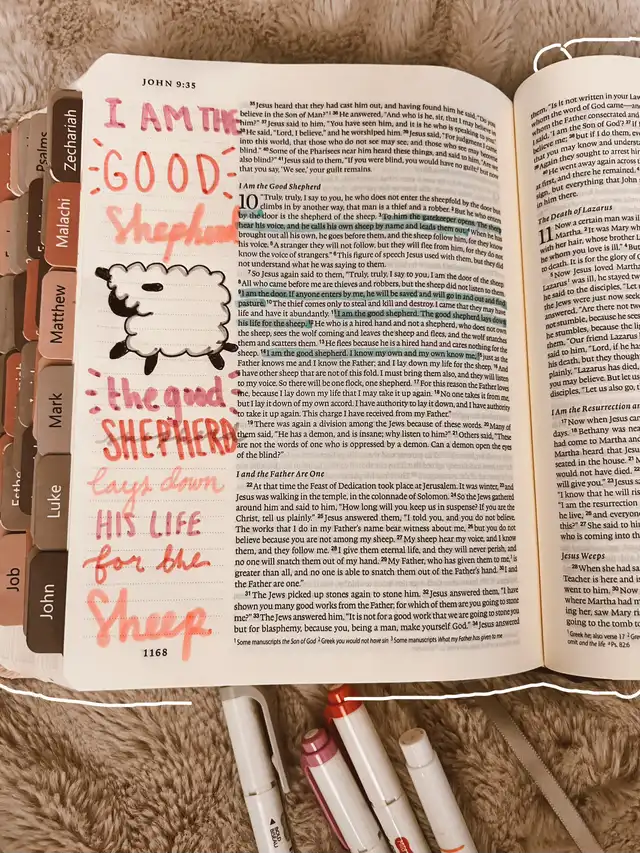 JOHN 9:35
I AM THE
GOOD
Shepherd
the good
SHEPHERD
lays down
HIS LIFE
for the
Sheep
1168
Psalms
Zechariah
Malachi
Matthew
Mark
Luke
John
Job
35 Jesus heard that they had cast him out, and having found him he said, "Do you
believe in the Son of Man?"1 36 He answered, "And who is he, sir, that I may believe in
him?" 37 Jesus said to him, "You have seen him, and it is he who is speaking to you."
38 He said, "Lord, I believe," and he worshiped him. 39 Jesus said, "For judgment I came
into this world, that those who do not see may see, and those who see may become
blind." 40 Some of the Pharisees near him heard these things, and said to him, "Are we
also blind?" 41 Jesus said to them, "If you were blind, you would have no guilt;2 but now
that you say, 'We see,' your guilt remains.
I Am the Good Shepherd
10 "Truly, truly, I say to you, he who does not enter the sheepfold by the door but
climbs in by another way, that man is a thief and a robber. 2 But he who enters
by the door is the shepherd of the sheep. 3 To him the gatekeeper opens. The sheep
hear his voice, and he calls his own sheep by name and leads them out. 4 When he has
brought out all his own, he goes before them, and the sheep follow him, for they know
his voice. 5 A stranger they will not follow, but they will flee from him, for they do not
know the voice of strangers." 6 This figure of speech Jesus used with them, but they did
not understand what he was saying to them.
7 So Jesus again said to them, "Truly, truly, I say to you, I am the door of the sheep.
8 All who came before me are thieves and robbers, but the sheep did not listen to them.
9 I am the door. If anyone enters by me, he will be saved and will go in and out and find
pasture. 10 The thief comes only to steal and kill and destroy. I came that they may have
life and have it abundantly. 11 I am the good shepherd. The good shepherd lays down
his life for the sheep. 12 He who is a hired hand and not a shepherd, who does not own
the sheep, sees the wolf coming and leaves the sheep and flees, and the wolf snatches
them and scatters them. 13 He flees because he is a hired hand and cares nothing for the
sheep. 14 I am the good shepherd. I know my own and my own know me, 15 just as the
Father knows me and I know the Father; and I lay down my life for the sheep. 16 And
I have other sheep that are not of this fold. I must bring them also, and they will listen
to my voice. So there will be one flock, one shepherd. 17 For this reason the Father loves
me, because I lay down my life that I may take it up again. 18 No one takes it from me,
but I lay it down of my own accord. I have authority to lay it down, and I have authority
to take it up again. This charge I have received from my Father."
19 There was again a division among the Jews because of these words. 20 Many of
them said, "He has a demon, and is insane; why listen to him?" 21 Others said, "These
are not the words of one who is oppressed by a demon. Can a demon open the eyes
of the blind?"
I and the Father Are One
22 At that time the Feast of Dedication took place at Jerusalem. It was winter, 23 and
Jesus was walking in the temple, in the colonnade of Solomon. 24 So the Jews gathered
around him and said to him, "How long will you keep us in suspense? If you are the
Christ, tell us plainly." 25 Jesus answered them, "I told you, and you do not believe.
The works that I do in my Father's name bear witness about me, 26 but you do not
believe because you are not among my sheep. 27 My sheep hear my voice, and I know
them, and they follow me. 28 I give them eternal life, and they will never perish, and
no one will snatch them out of my hand. 29 My Father, who has given them to me,3 is
greater than all, and no one is able to snatch them out of the Father's hand. 30 I and
the Father are one."
31 The Jews picked up stones again to stone him. 32 Jesus answered them, "I have
shown you many good works from the Father; for which of them are you going to stone
me?" 33 The Jews answered him, "It is not for a good work that we are going to stone you
but for blasphemy, because you, being a man, make yourself God." 34 Jesus answered
1 Some manuscripts the Son of God 2 Greek you would not have sin 3 Some manuscripts What my Father has given to me
them, "Is it not written in your Law
whom the word of God came—and
whom the Father consecrated and
'I am the Son of God'? 37 If
believe me; 38 but if I do them, ev
that you may know and understand
39 Again they sought to arrest him
40 He went away across again
at first, and there he remained. 4
sign, but everything that John
in him there.
The Death of Lazarus
11 Now a certain man was i
2 It was Mary wh
with her hair, whose brother L
he whom you love is ill." 4 But
to death. It is for the glory of G
5 Now Jesus loved Martha
Lazarus1 was ill, he stayed tw
he said to the disciples, "Let u
the Jews were just now seek
answered, "Are there not tw
not stumble, because he sees
he stumbles, because the li
them, "Our friend Lazarus
said to him, "Lord, if he has
his death, but they thought
plainly, "Lazarus has died,
you may believe. But let us
disciples, "Let us also go, t
I Am the Resurrection a
17 Now when Jesus came
days. 18 Bethany was near
had come to Martha and
Martha heard that Jesus
seated in the house. 21 M
would not have died. 22
will give you." 23 Jesus said
"I know that he will ris
"I am the resurrection
he live, 26 and everyone
this?" 27 She said to him
who is coming into th
Jesus Weeps
28 When she had sa
Teacher is here and i
went to him. 30 Now
where Martha had m
ing her, saw Mary ris
going to the tomb to